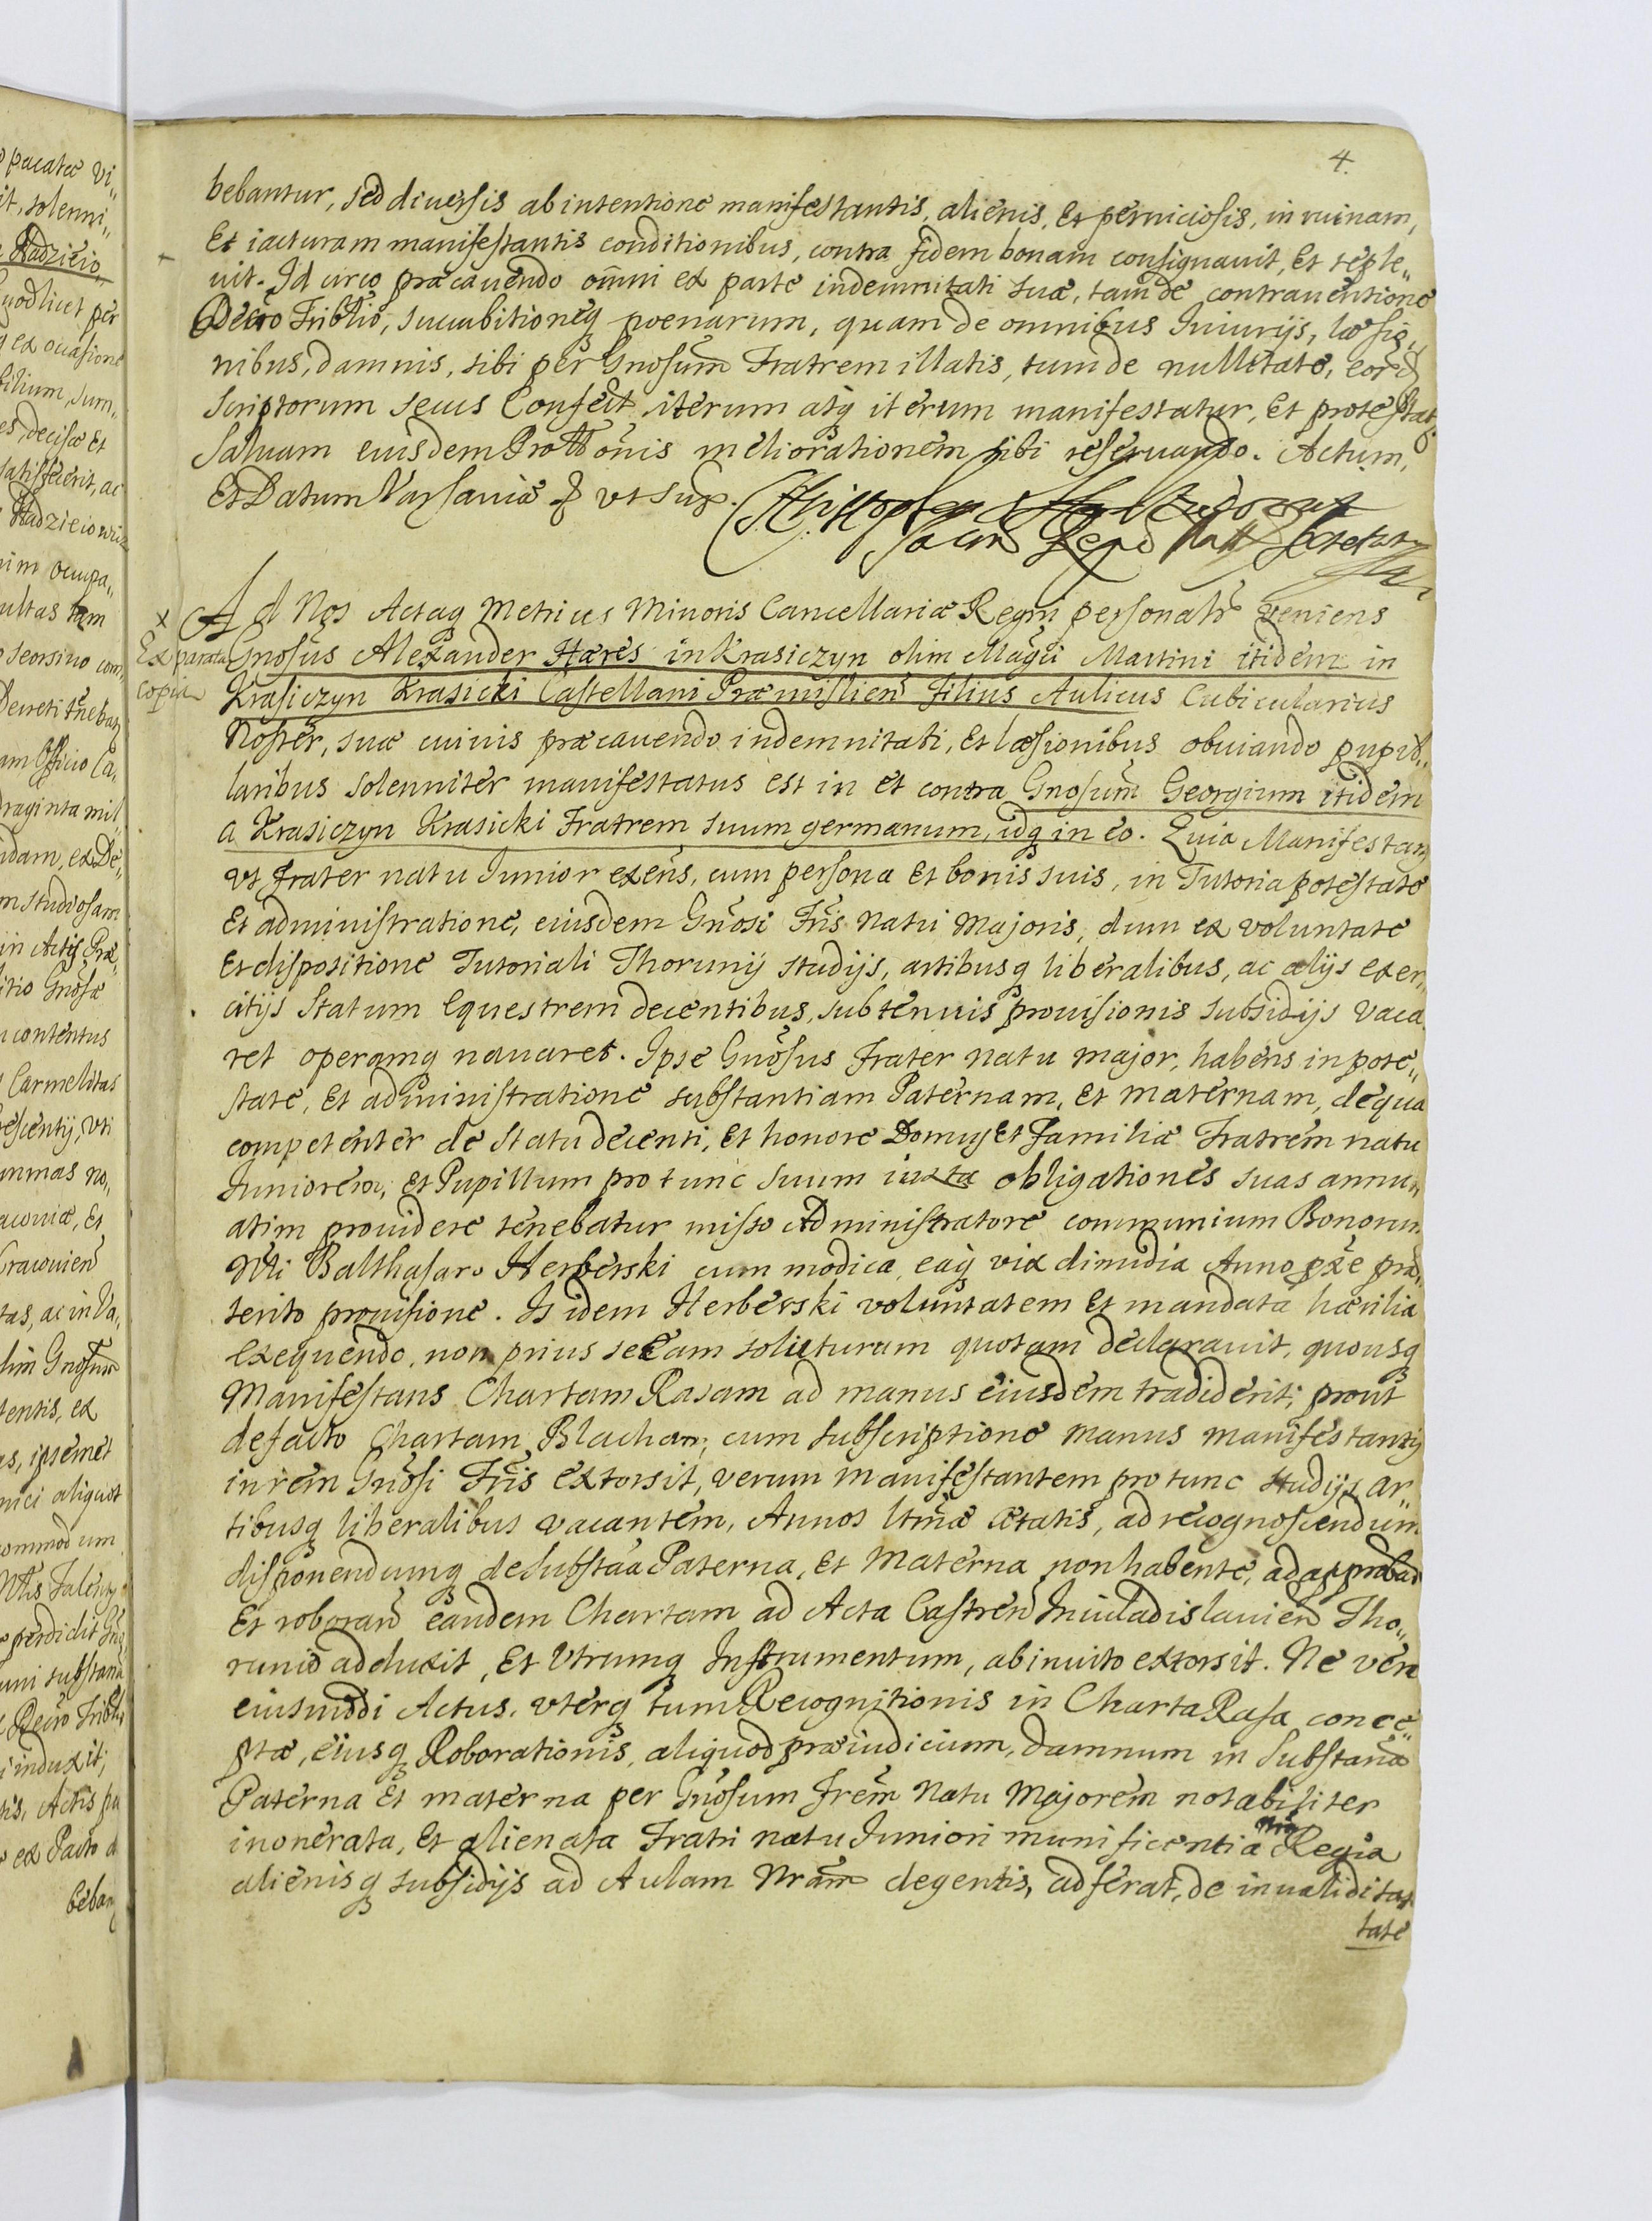 4.
bebantur, sed diuersis ab intentione manifestantis, alienis, Et perniciosis, in ruinam,
Et iacturam manifestantis conditionibus, contra fidem bonam consignauit, Et reple„
uit. Id circo præcauendo omni ex parte indemnitati suæ, tam de contrauentione
Decreto Triblio, succubitioneq poenarum, quam de omnibus Iniurijs, læsio„
nibus, damnis, sibi per Gnosum Fratrem illatis, tum de nullitate, eor
Scriptorum secus Confect. iterum atq iterum manifestatur, Et protestat
Saluam eiusdem Prottonis meliorationem sibi reseruando. Actum,
Et Datum Varsauiæ vt supr.
Ad Nos Actaq Metrices Minoris Cancellariæ Regni personalr veniens
x
Ex parata
copia
Gnosus Alexander Hæres in Krasiczyn olim Magci Martini itidem in
Krasiczyn Krasicki Castellani Præmislien Filius Aulicus Cubicularius
Noster, suæ cuiuis præcauendo indemnitati, Et læsionibus obuiando pupil„
laribus solenniter manifestatus est in et contra Gnosum Georgium itidem
a Krasiczyn Krasicki Fratrem suum germanum, idq in eo. Quia Manifestans
vt frater natu Junior exens, cum persona Et bonis suis, in Tutoria potestate
Et administratione, eiusdem Gnosi Fris Natu Majoris, dum ex voluntate
Et dispositione Tutoriali Thorunij studijs, artibusq liberalibus, ac alijs exer„
citijs Statum Equestrem decentibus, sub tenuis prouisionis subsidijs vaca
ret operamq nauaret. Ipse Gnosus Frater natu major, habens in pote„
state, Et administratione substantiam Paternam, Et maternam, de qua
competenter de Statu decenti, Et honore Domus Et Familiæ Fratrem natu
Juniorem, Et Pupillum pro tunc suum iuxta obligationes suas annu„
atim prouidere tenebatur misso Administratore communium Bonorum
Nbli Balthasaro Herberski cum modica, eaq vix dimidia Anno pxe præ„
terito prouisione. Is idem Herberski voluntatem Et mandata hærilia
Exequendo, non prius se eam soluturum quotam declarauit, quousq
Manifestans Chartam Rasam ad manus eiusdem tradiderit; prout
de facto Chartam Blacham, cum subscriptione manus manifestantis
in rem Gnosi Fris extorsit, verum manifestantem pro tunc studijs, ar„
tibusq liberalibus vacantem, Annos ltmæ ætatis, ad recognoscendum
disponendumq de substãa Paterna, Et Materna non habente, ad approband
Et roborand eandem Chartam ad Acta Castren Iniuladislauien Tho„
runio adduxit, Et Vtrumq Instrumentum, ab inuito extorsit. Ne vero
eiusmodi Actus, vterq tum Recognitionis in Charta Rasa conce„
ptæ, eiusq Roborationis, aliquod præiudicium, damnum in Substana
Paterna Et materna per Gnosum Frem Natu Majorem notabiliter
inonerata, Et alienata Fratri natu Juniori munificentia Nra Regia
alienisq subsidijs ad Aulam Nram degentis, adferat, de inualidita„
tate